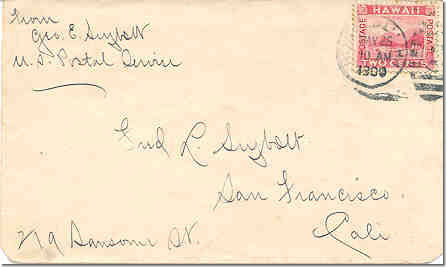 From
Geo. E. Suybolt
U.S. Postal Service
HAWAII
POSTAGE
POSTAGE
TWO CENTS
10 AM
1900
Fred R. Suybolt
San Francisco
Cali
279 Sansome St.